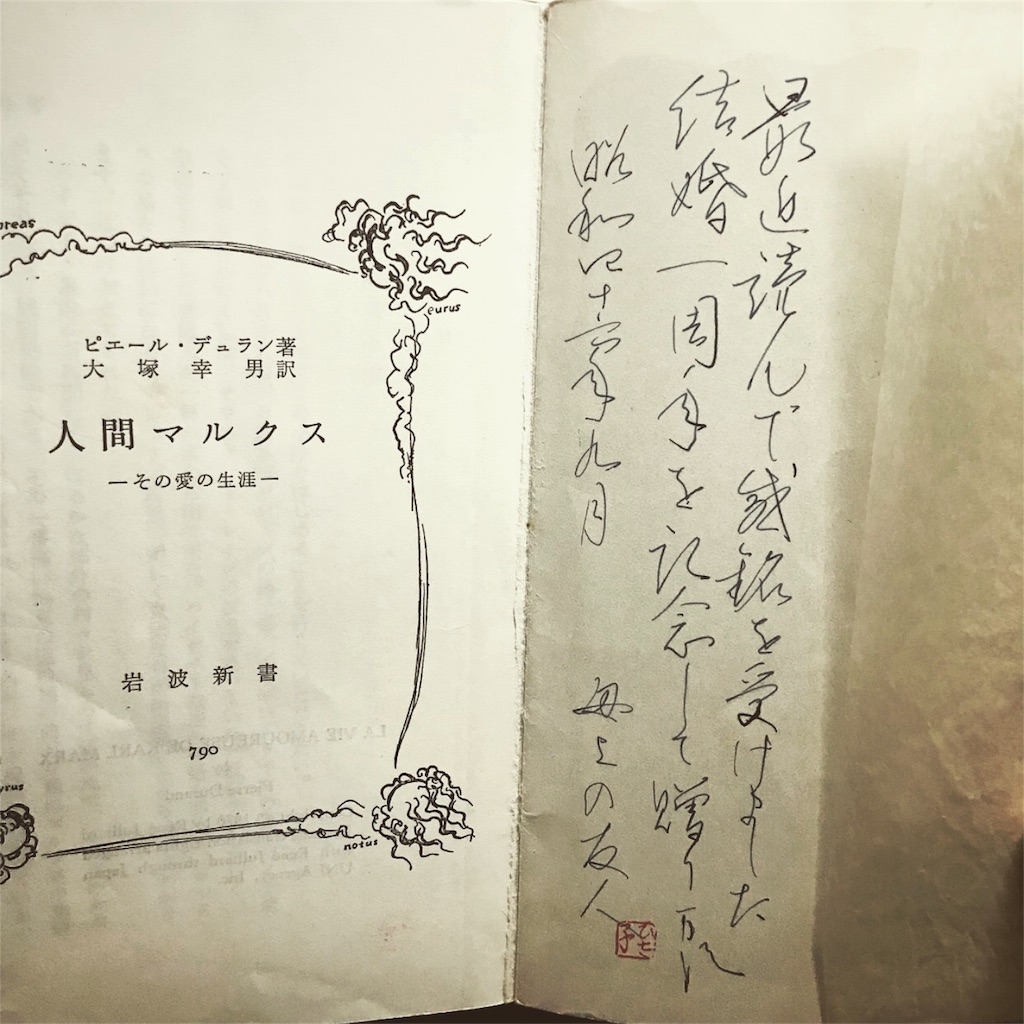 oreas
eurus
ピエール・デュラン著
大塚幸男訳
人間マルクス
—その愛の生涯—
岩波新書
790
notus
最近読んで感銘を受けました
結婚一周年を記念して贈り万須
昭和四十六年九月
母上の友人